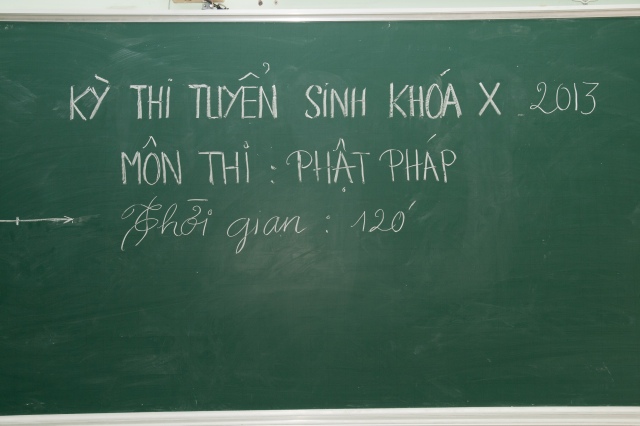 KỲ THI TUYỂN SINH KHÓA X 2013
MÔN THI : PHẬT PHÁP
Thời gian : 120'